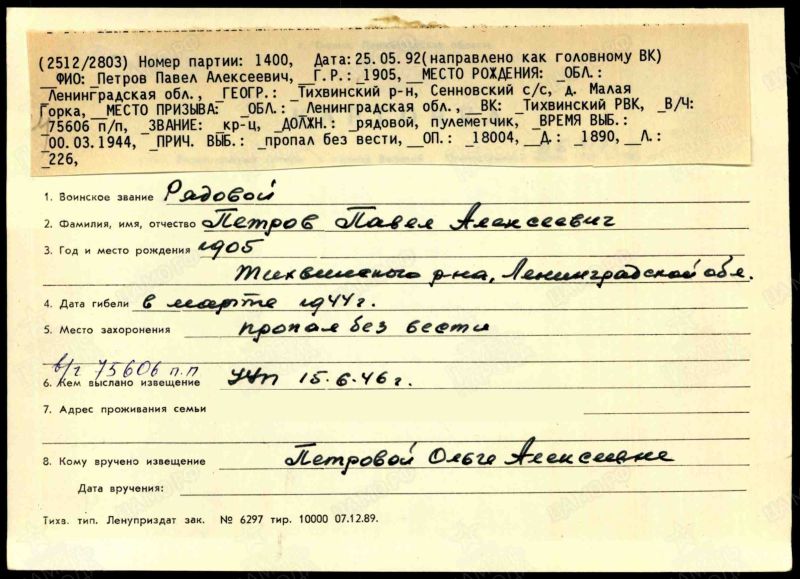 (2512/2803) Номер партии: 1400, Дата: 25.05.92(направлено как головному ВК)
_ФИО: _Петров Павел Алексеевич, __Г.Р.: _1905, __МЕСТО РОЖДЕНИЯ: _ОБЛ.:
_Ленинградская обл., _ГЕОГР.: _Тихвинский р-н, Сенновский с/с, д. Малая
Горка, __МЕСТО ПРИЗЫВА: _ОБЛ.: _Ленинградская обл., _ВК: _Тихвинский РВК, _В/Ч:
_75606 п/п, _ЗВАНИЕ: _кр-ц, _ДОЛЖН.: _рядовой, пулеметчик, _ВРЕМЯ ВЫБ.:
_00.03.1944, _ПРИЧ. ВЫБ.: _пропал без вести, __ОП.: _18004, __Д.: _1890, __Л.:
_226,
1. Воинское звание Рядовой
2. Фамилия, имя, отчество Петров Павел Алексеевич
3. Год и место рождения 1905
Тихвинского р-на, Ленинградской обл.
4. Дата гибели в марте 1944г.
5. Место захоронения пропал без вести
в/г 75606 п.п
6. Кем выслано извещение УУП 15.6.46г.
7. Адрес проживания семьи
8. Кому вручено извещение Петровой Ольге Алексеевне
Дата вручения:
Тихв. тип. Ленуприздат зак. № 6297 тир. 10000 07.12.89.